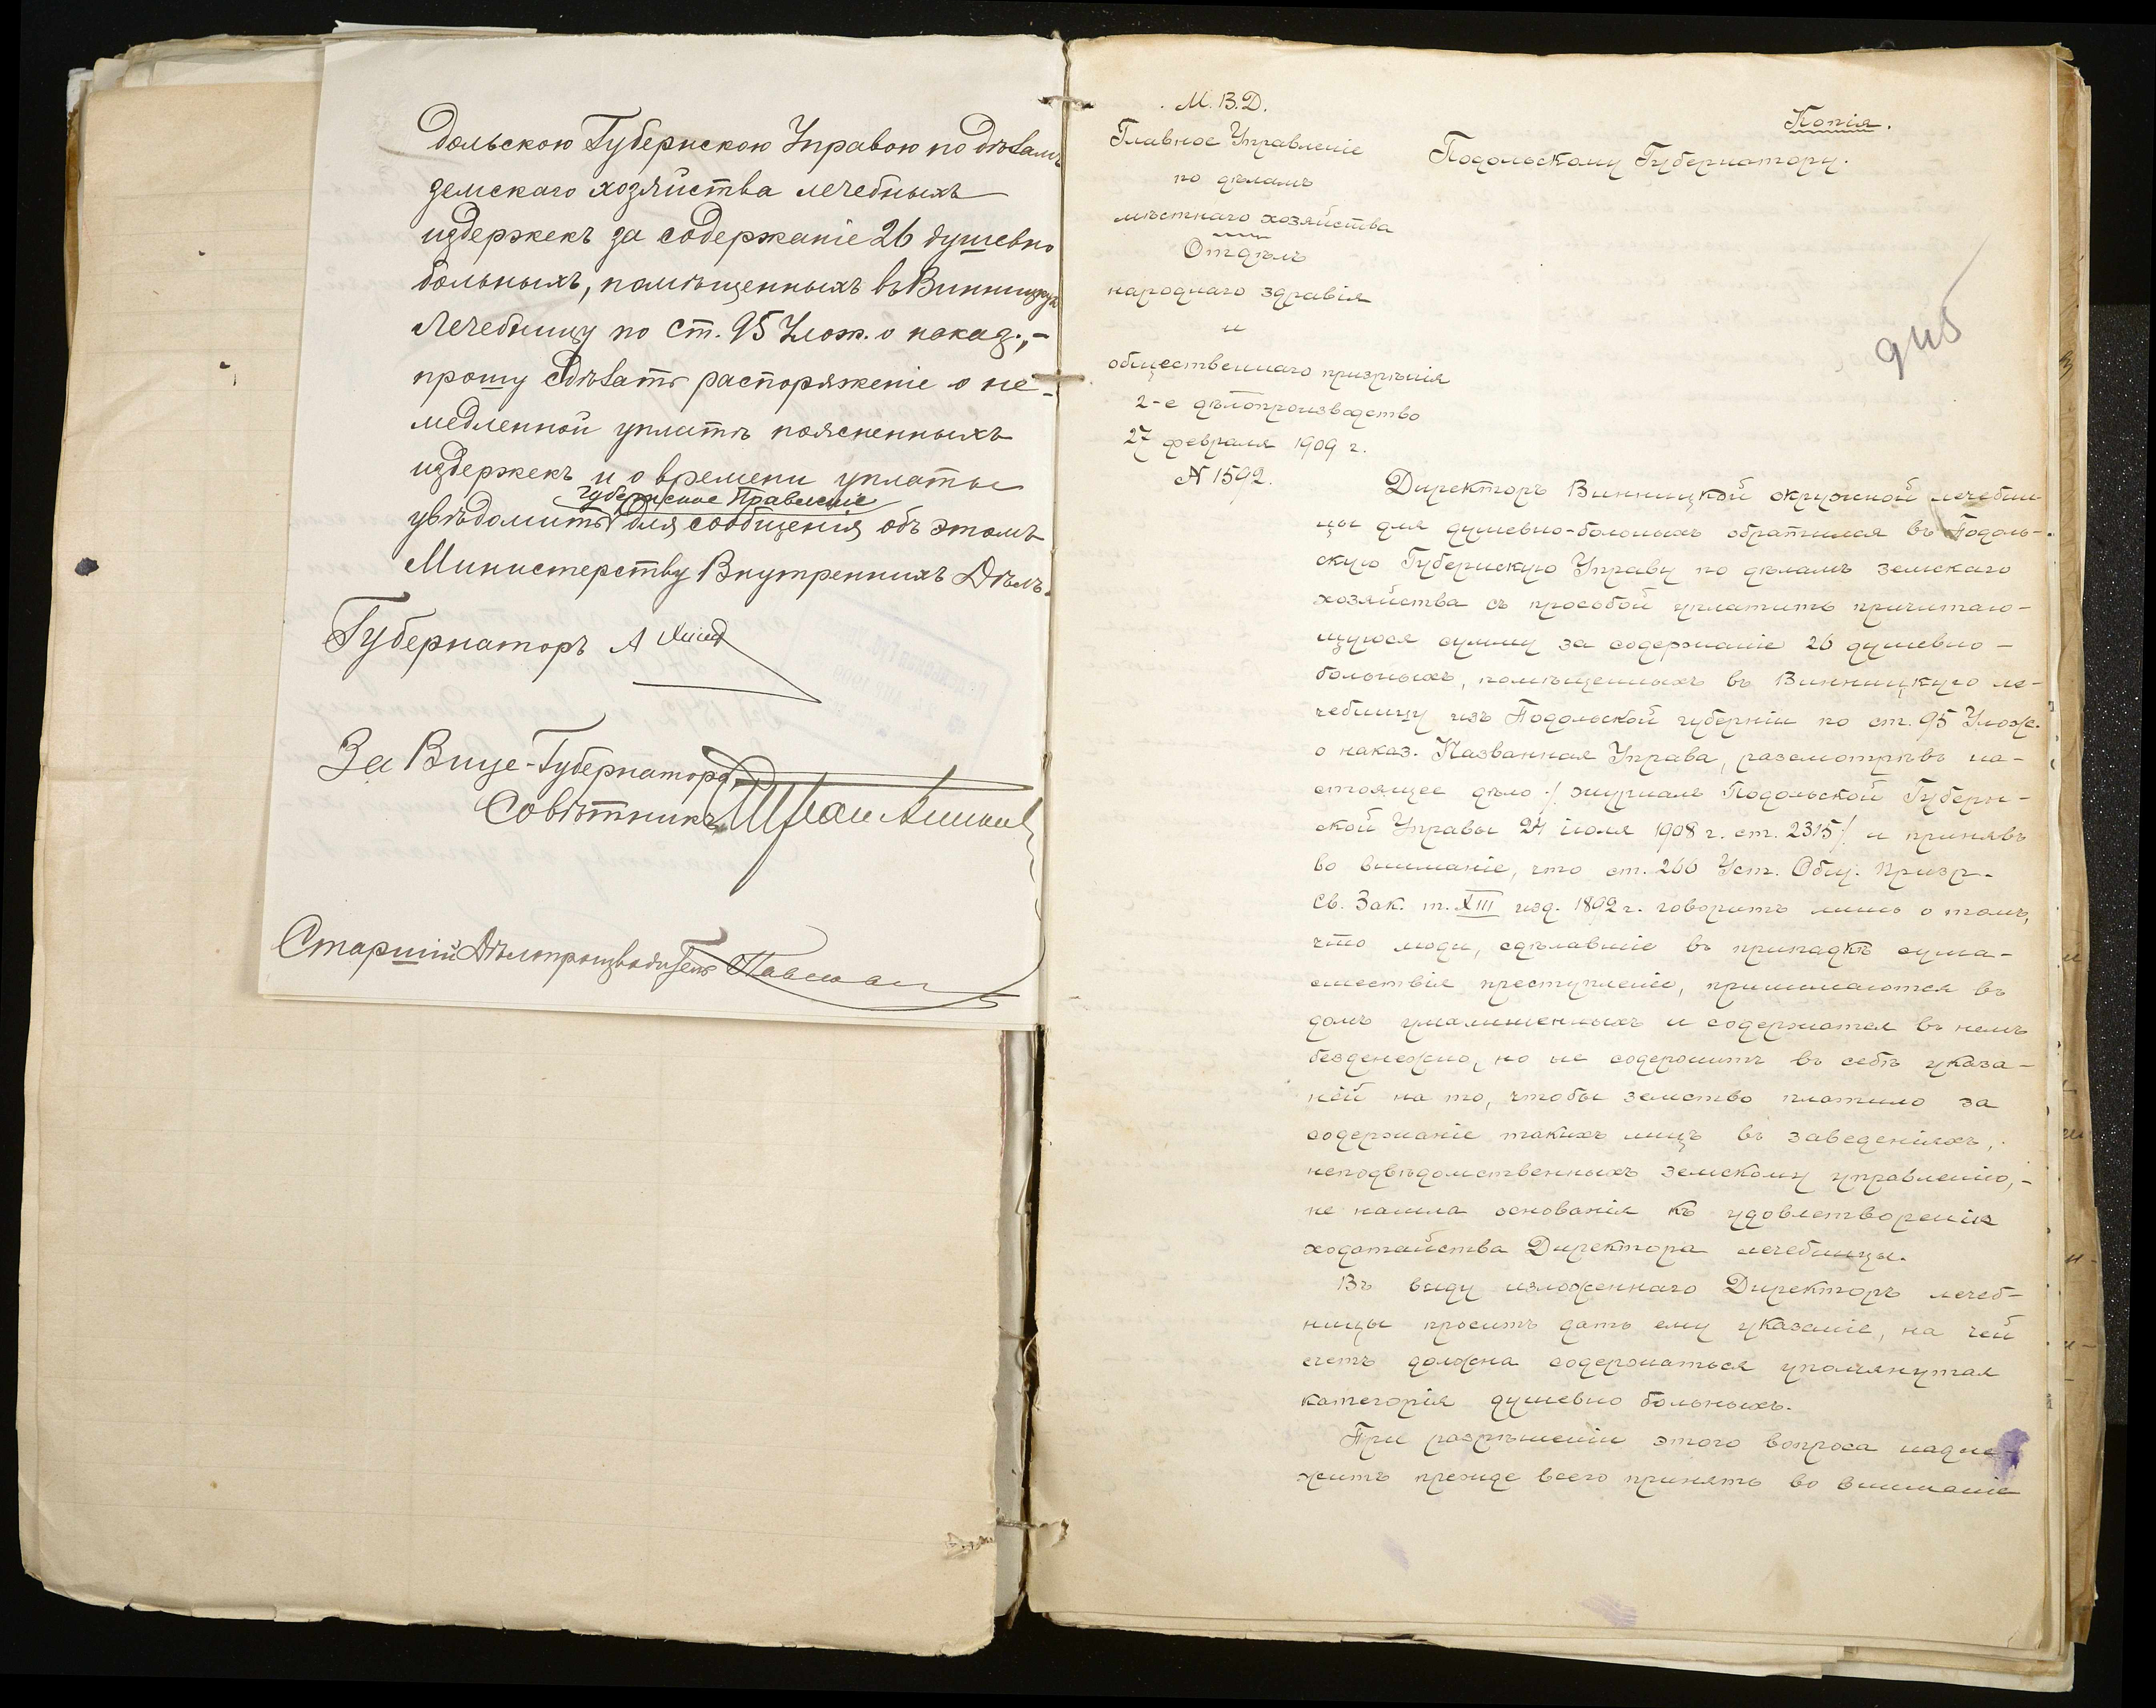 дольскою Губернскою Управою по дѣламъ
земскаго хозяйства лечебныхъ
издержекъ за содержаніе 26 душевно
больныхъ, помѣщенныхъ въ Винницкую
Лечебницу по ст. 95 Улож. о наказ., –
прошу сдѣлать распоряженіе о не-
медленной уплатѣ поясненныхъ
издержекъ и о времени уплаты
Губернское Правленіе
увѣдомить для сообщенія объ этомъ
Министерству Внутреннихъ Дѣлъ.
Губернаторъ А
За Вице-Губернатора,
Совѣтникъ
Старшій Дѣлопроизводитель
М. В. Д.
Главное Управленіе
по дѣламъ
мѣстнаго хозяйства
Отдѣлъ
народнаго здравія
и
общественнаго призрѣнія
2-е дѣлопроизводство
27 февраля 1909 г.
№ 1592.
Копія.
Подольскому Губернатору.
Директоръ Винницкой окружной лечебни-
цы для душевно-больныхъ обратился въ Подоль-
скую Губернскую Управу по дѣламъ земскаго
хозяйства съ просьбой уплатить причитаю-
щуюся сумму за содержаніе 26 душевно-
больныхъ, помѣщенныхъ въ Винницкую ле-
чебницу изъ Подольской губерніи по ст. 95 Улож.
о наказ. Названная Управа, разсмотрѣвъ на-
стоящее дѣло /журналъ Подольской Губерн-
ской Управы 24 іюля 1908 г. ст. 2315/ и принявъ
во вниманіе, что ст. 260 Уст. Общ. Призр.
Св. Зак. т. XIII изд. 1892 г. говоритъ лишь о томъ,
что люди, сдѣлавшіе въ припадкѣ сума-
сшествія преступленіе, принимаются въ
домъ умалишенныхъ и содержатся въ немъ
безденежно, но не содержитъ въ себѣ указа-
ній на то, чтобы земство платило за
содержаніе такихъ лицъ въ заведеніяхъ,
неподвѣдомственныхъ земскому управленію, –
не нашла основанія къ удовлетворенію
ходатайства Директора лечебницы.
Въ виду изложеннаго Директоръ лечеб-
ницы проситъ дать ему указаніе, на чей
счетъ должна содержаться упомянутая
категорія душевно больныхъ.
При разрѣшеніи этого вопроса надле-
житъ прежде всего принять во вниманіе